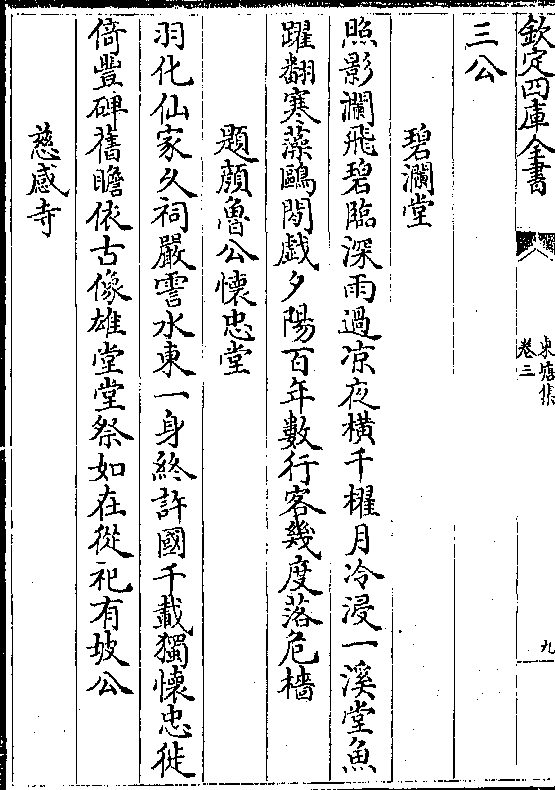 欽定四庫全書
東塘集
卷三
九
三公
碧瀾堂
照影瀾飛碧臨深雨過凉夜橫千櫂月冷浸一溪堂魚
躍翻寒藻鷗閒戯夕陽百年數行客幾度落危檣
題顔魯公懷忠堂
羽化仙家久祠嚴霅水東一身終許國千載獨懷忠徙
倚豐碑舊瞻依古像雄堂堂祭如在從祀有坡公
慈感寺